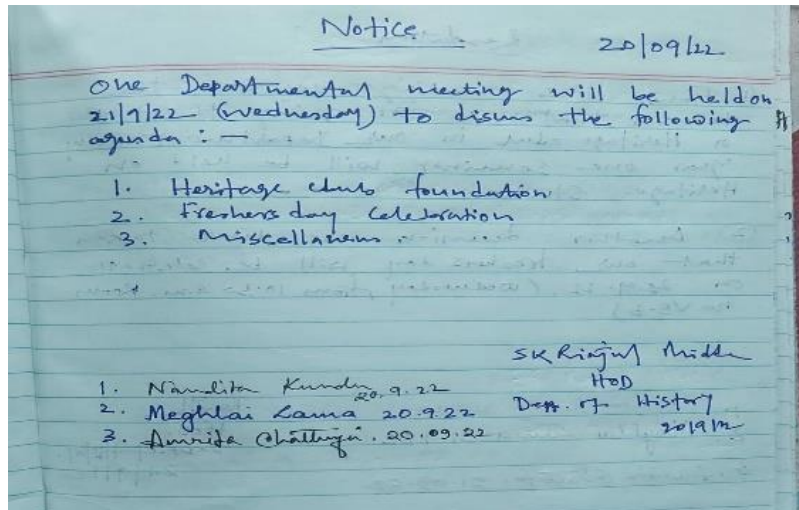 Notice
20/09/22
One Departmental meeting will be held on
21/9/22 (Wednesday) to discuss the following
agenda : —
1. Heritage club foundation
2. Freshers day Celebration
3. Miscellaneous .
SK Riajul
HOD
Dept. of History
20/9/22
1. Nandita Kundu 20.9.22
2. Meghlai Lama 20.9.22
3. Amrita 20.09.22